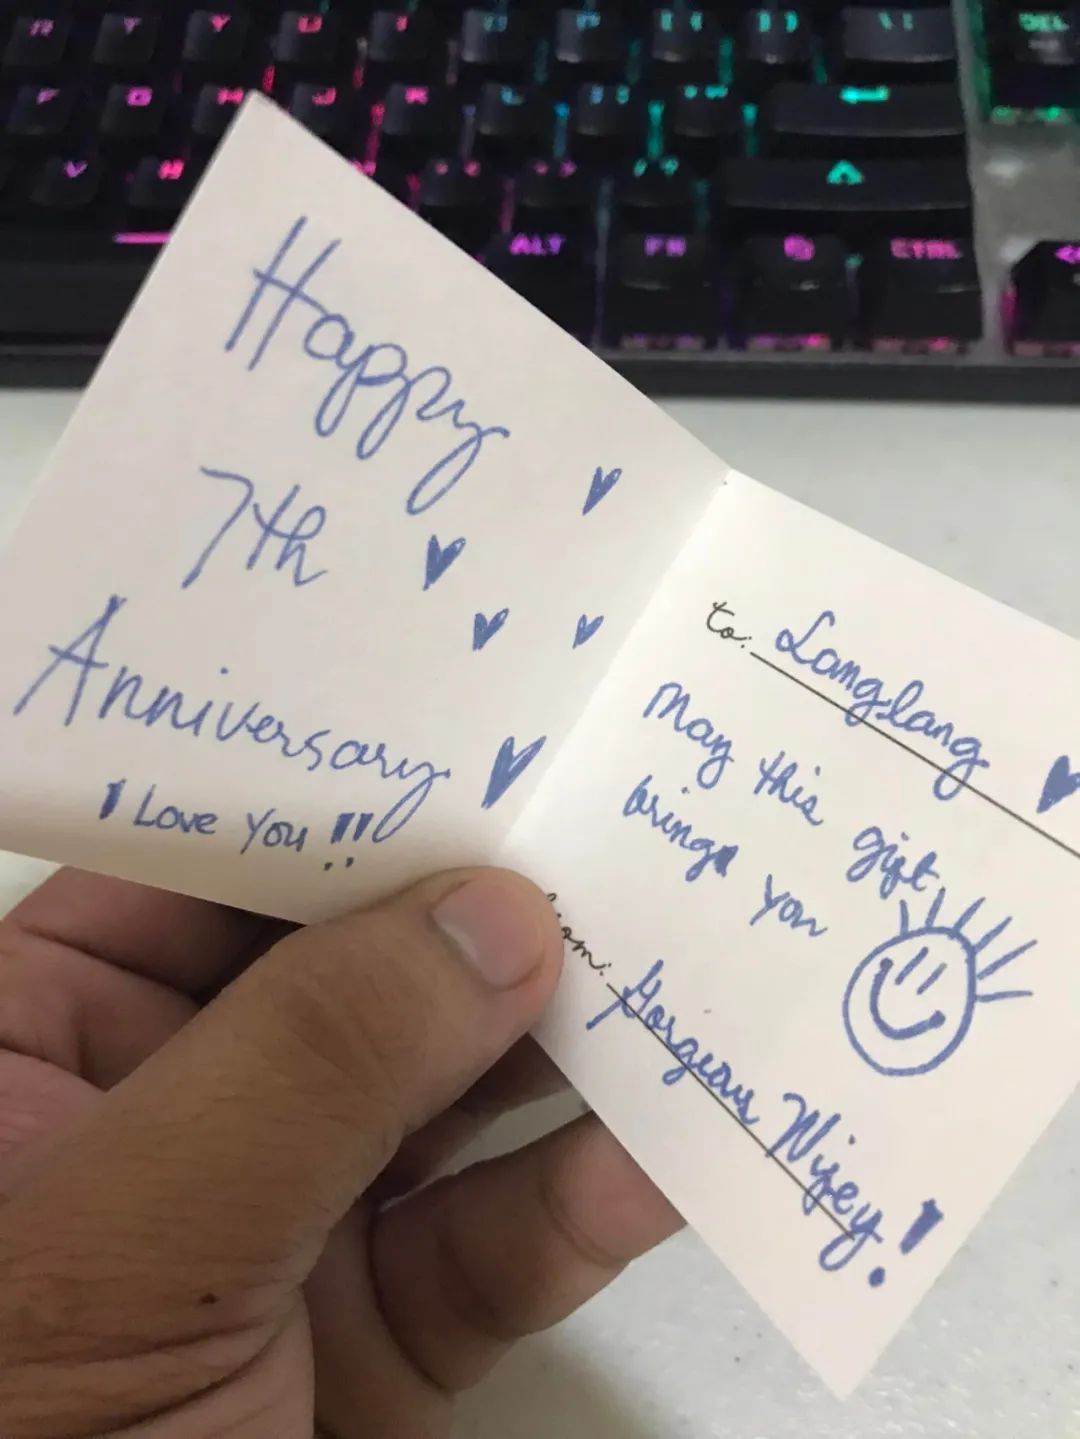 Happy
7th
Anniversary
I Love You !!
to: Langlang
May this gift
bring you
from: Gorgeous Wifey!
R T Y U I O P [ { ] } \ |
F G H J K L
V
ALT FN CTRL
DEL